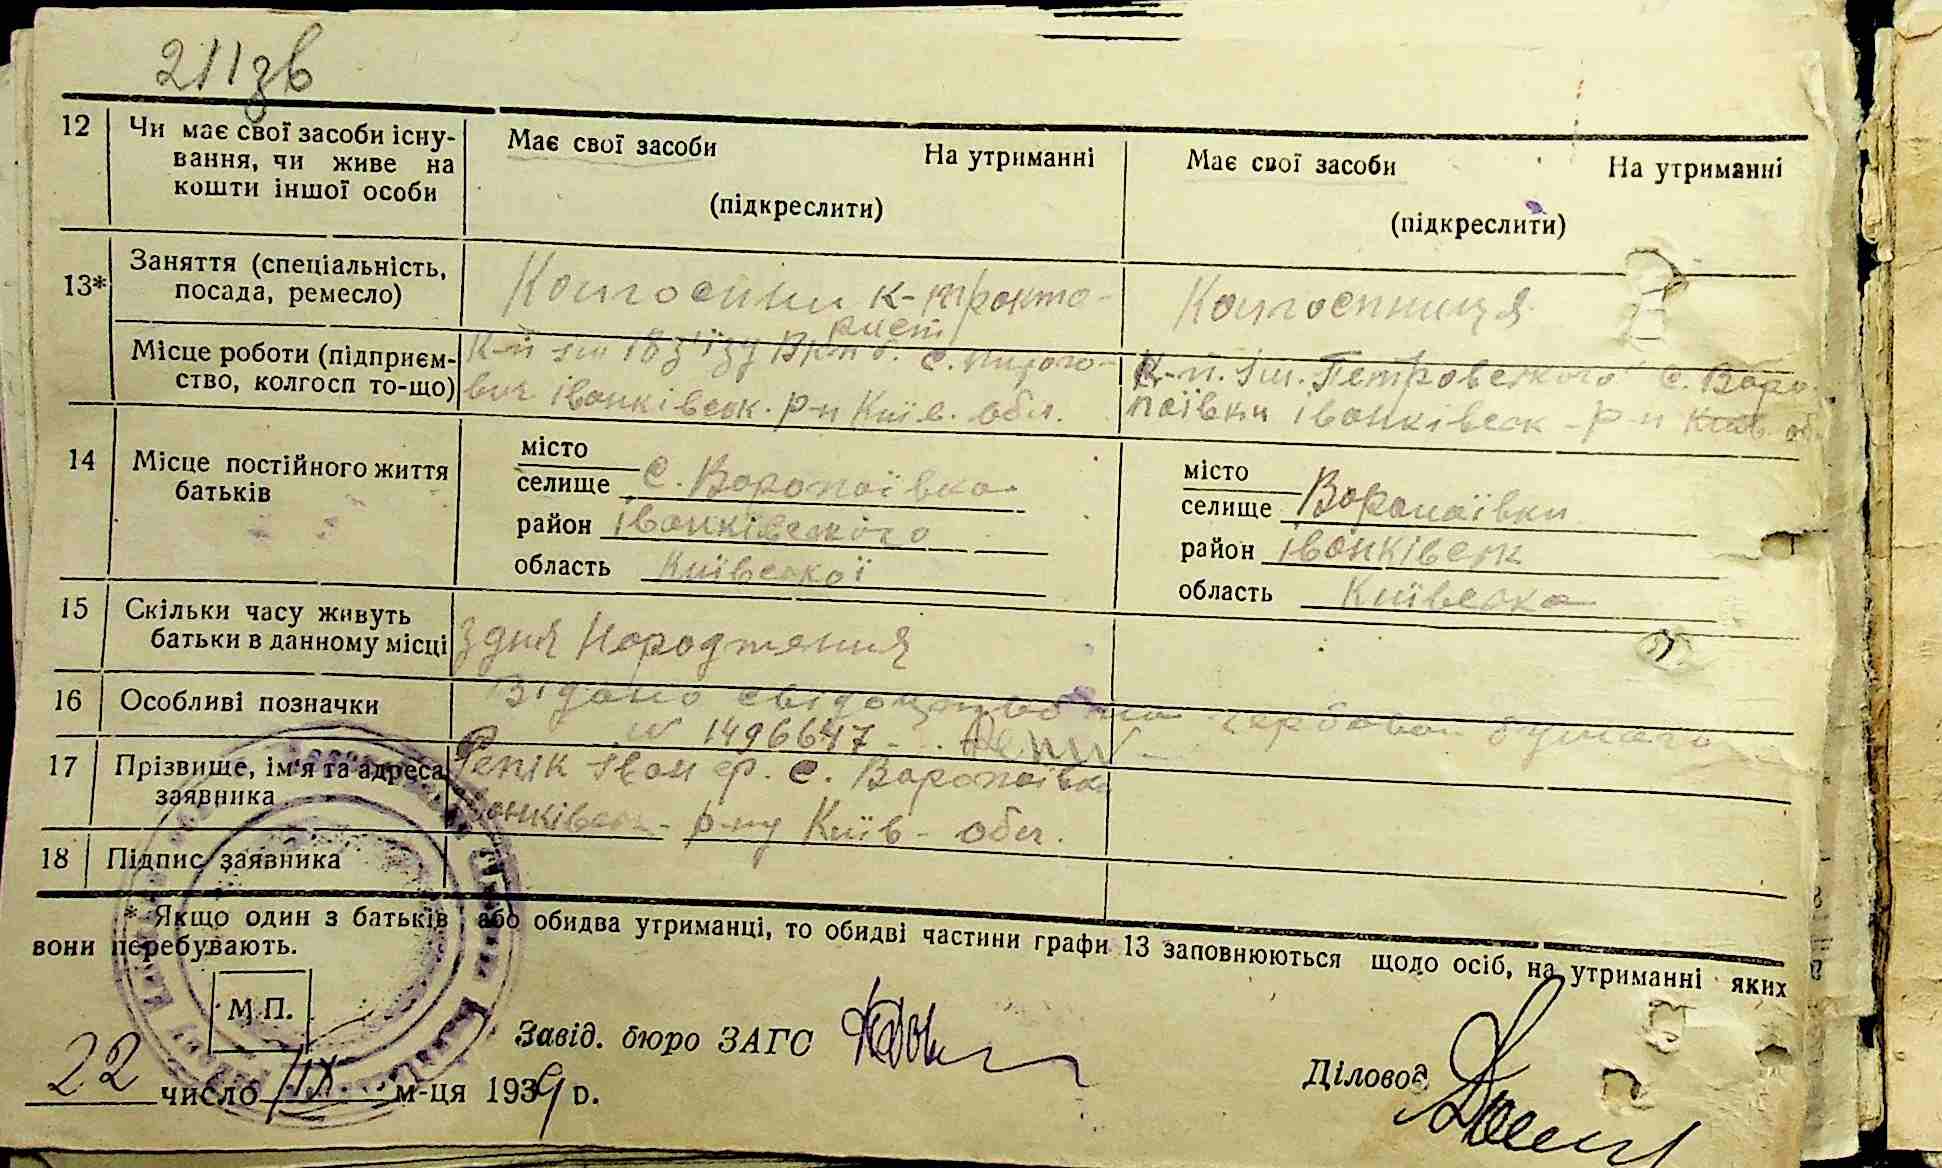 211зв
12 Чи має свої засоби існу- Має свої засоби На утриманні Має свої засоби На утриманні
вання, чи живе на
кошти іншої особи (підкреслити) (підкреслити)
13* Заняття (спеціальність, Колгоспник-тракто- Колгоспниця
посада, ремесло) рист
Місце роботи (підприєм- К-п ім 18 з'їзду ВКПб. с. Пирого- К-п. ім. Петровського с. Воро-
ство, колгосп то-що) вичі іванківськ. р-н Київ. обл. паївки іванківськ-р-н Київ. об.
14 Місце постійного життя місто місто
батьків селище С. Воропаївка селище Воропаївки
район іванківського район іванківськ
область Київської область Київська
15 Скільки часу живуть
батьки в данному місці З дня Народження
16 Особливі позначки Видано свідоцтво на гербовой бумаге
N 1496647
17 Прізвище, ім'я та адреса Репік Іван с. Воропаївка
заявника іванківськ-р-ну Київ-обл.
18 Підпис заявника
* Якщо один з батьків або обидва утриманці, то обидві частини графи 13 заповнюються щодо осіб, на утриманні яких
вони перебувають.
М П.
Завід. бюро ЗАГС
Діловод
22 число IX м-ця 1939 р.